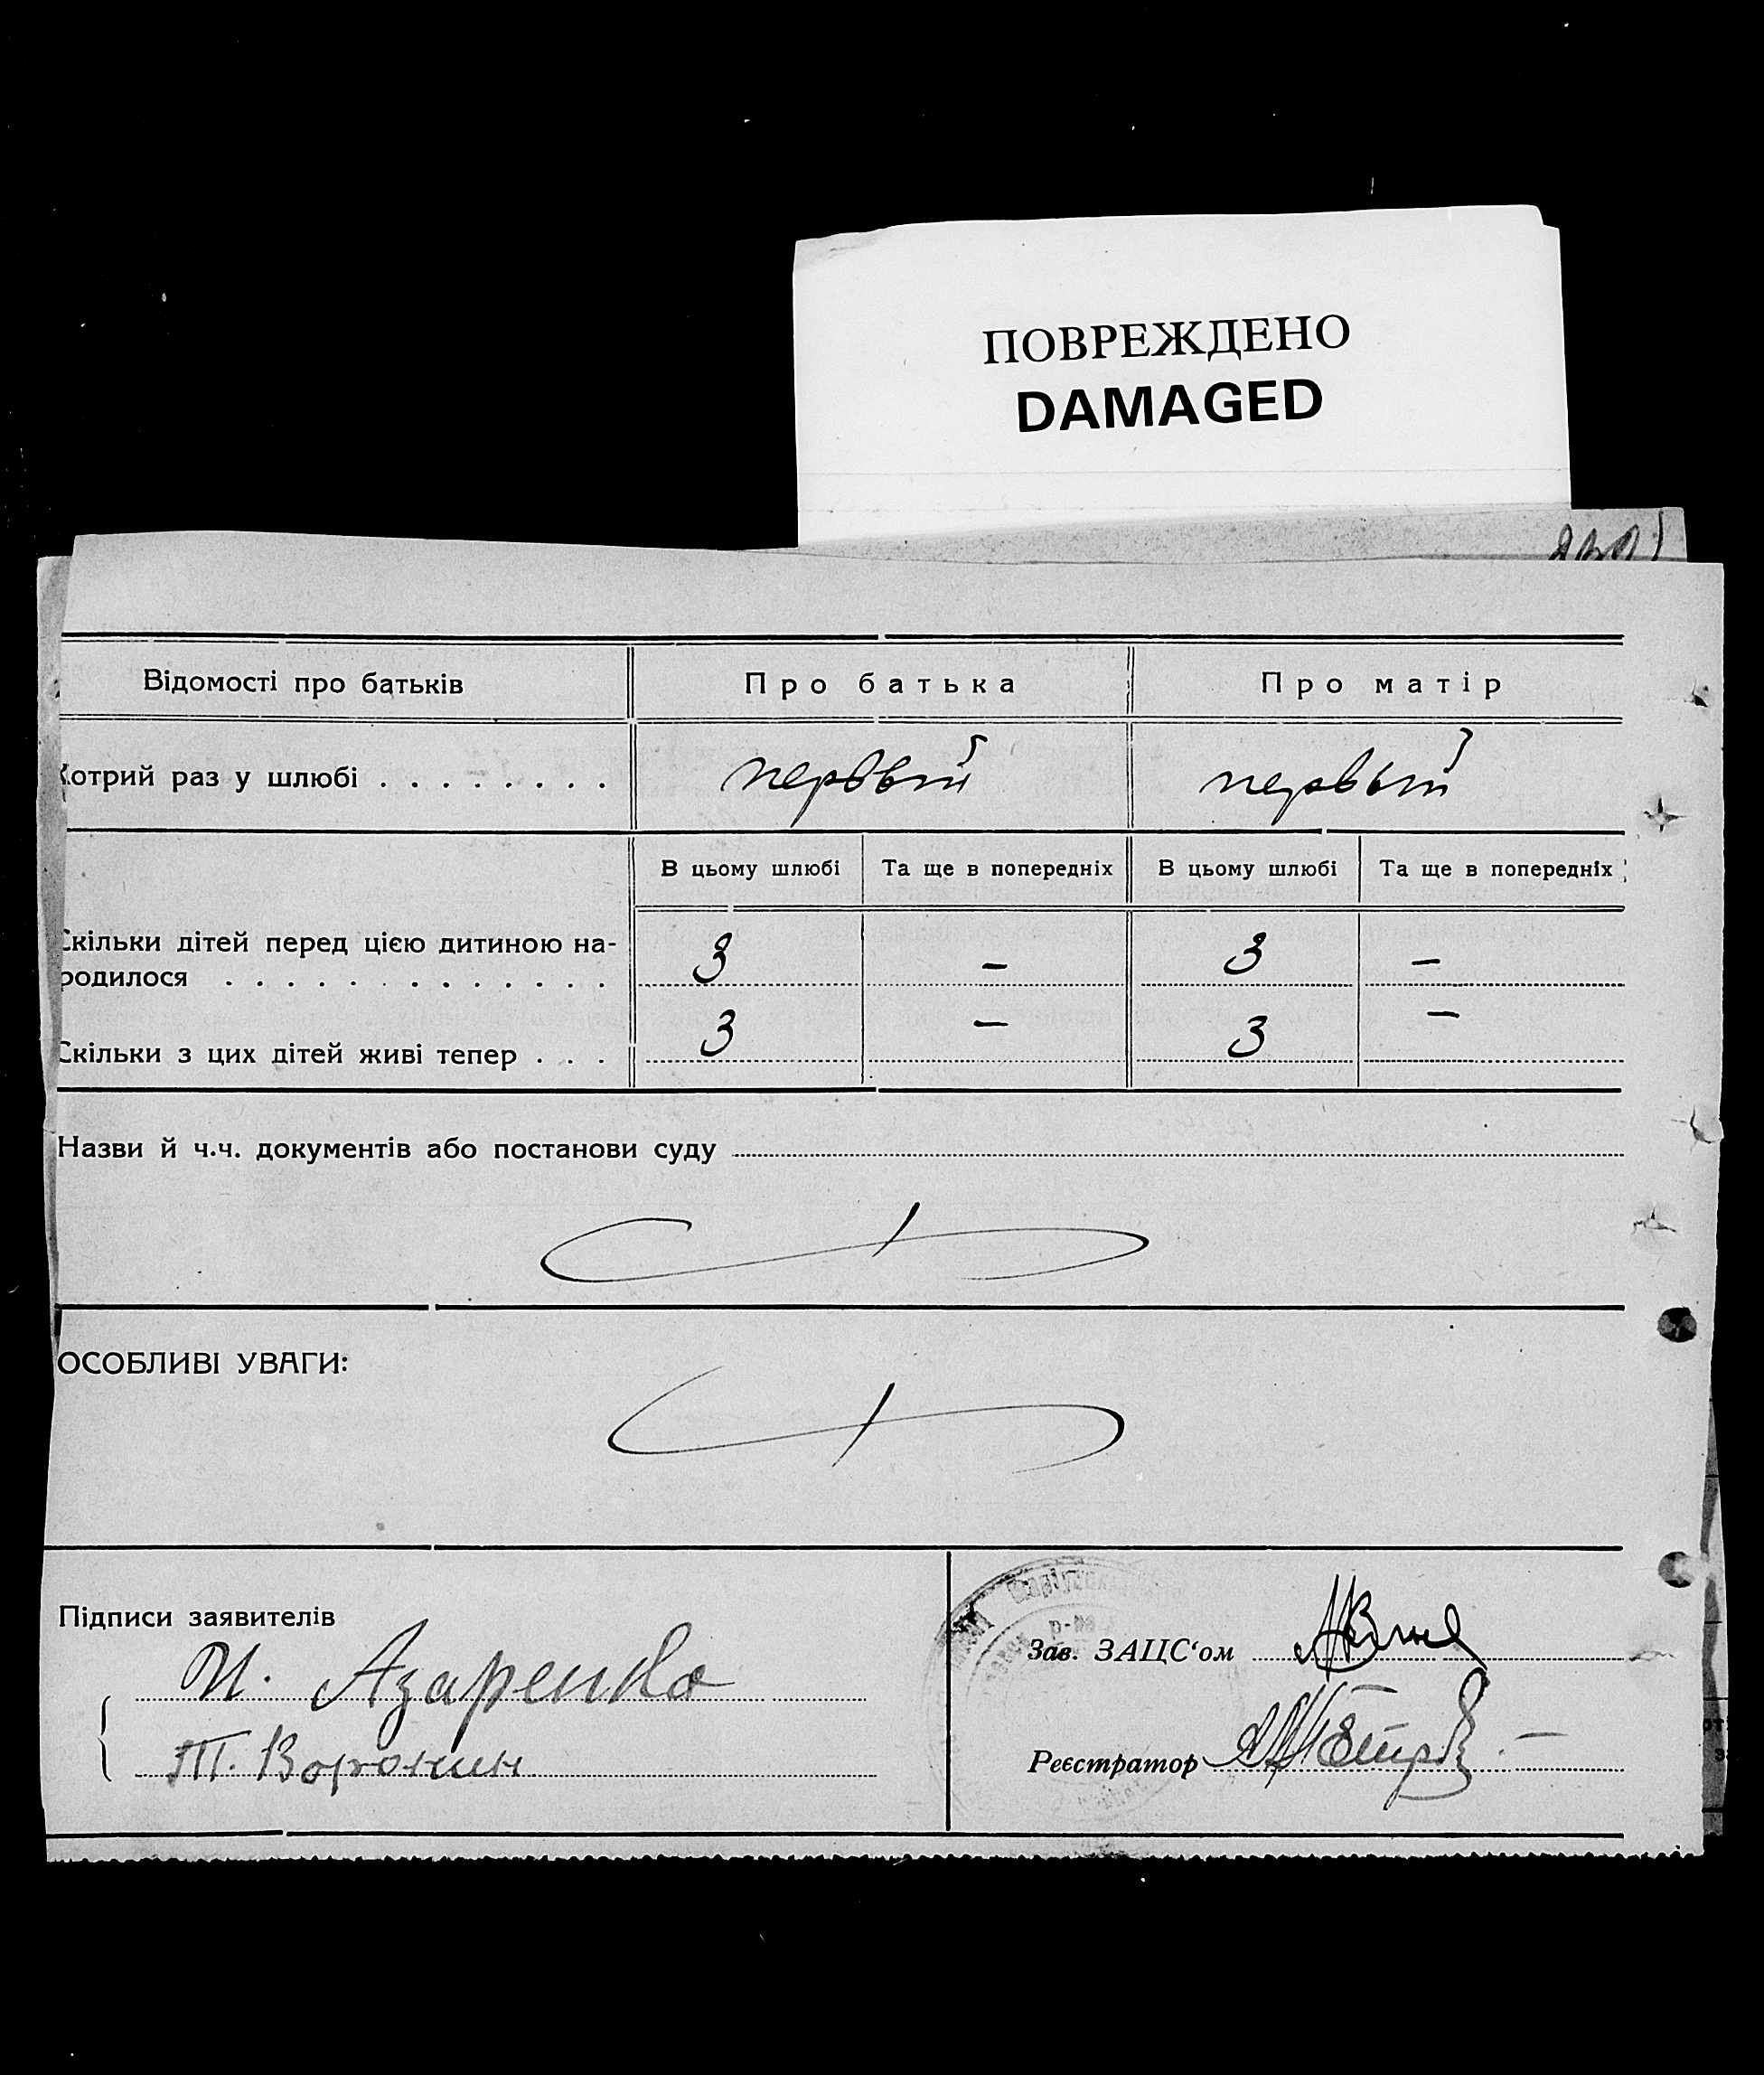 ПОВРЕЖДЕНО
DAMAGED
Відомості про батьків Про батька Про матір
Котрий раз у шлюбі . . . . . . . . первый первый
В цьому шлюбі Та ще в попередніх В цьому шлюбі Та ще в попередніх
Скільки дітей перед цією дитиною на-
родилося . . . . . . . . . . . . . 3 – 3 –
Скільки з цих дітей живі тепер . . . 3 – 3 –
Назви й ч.ч. документів або постанови суду
ОСОБЛИВІ УВАГИ:
Підписи заявителів
И. Азаренко
Т. Воронин
Зав. ЗАЦС‘ом
Реєстратор